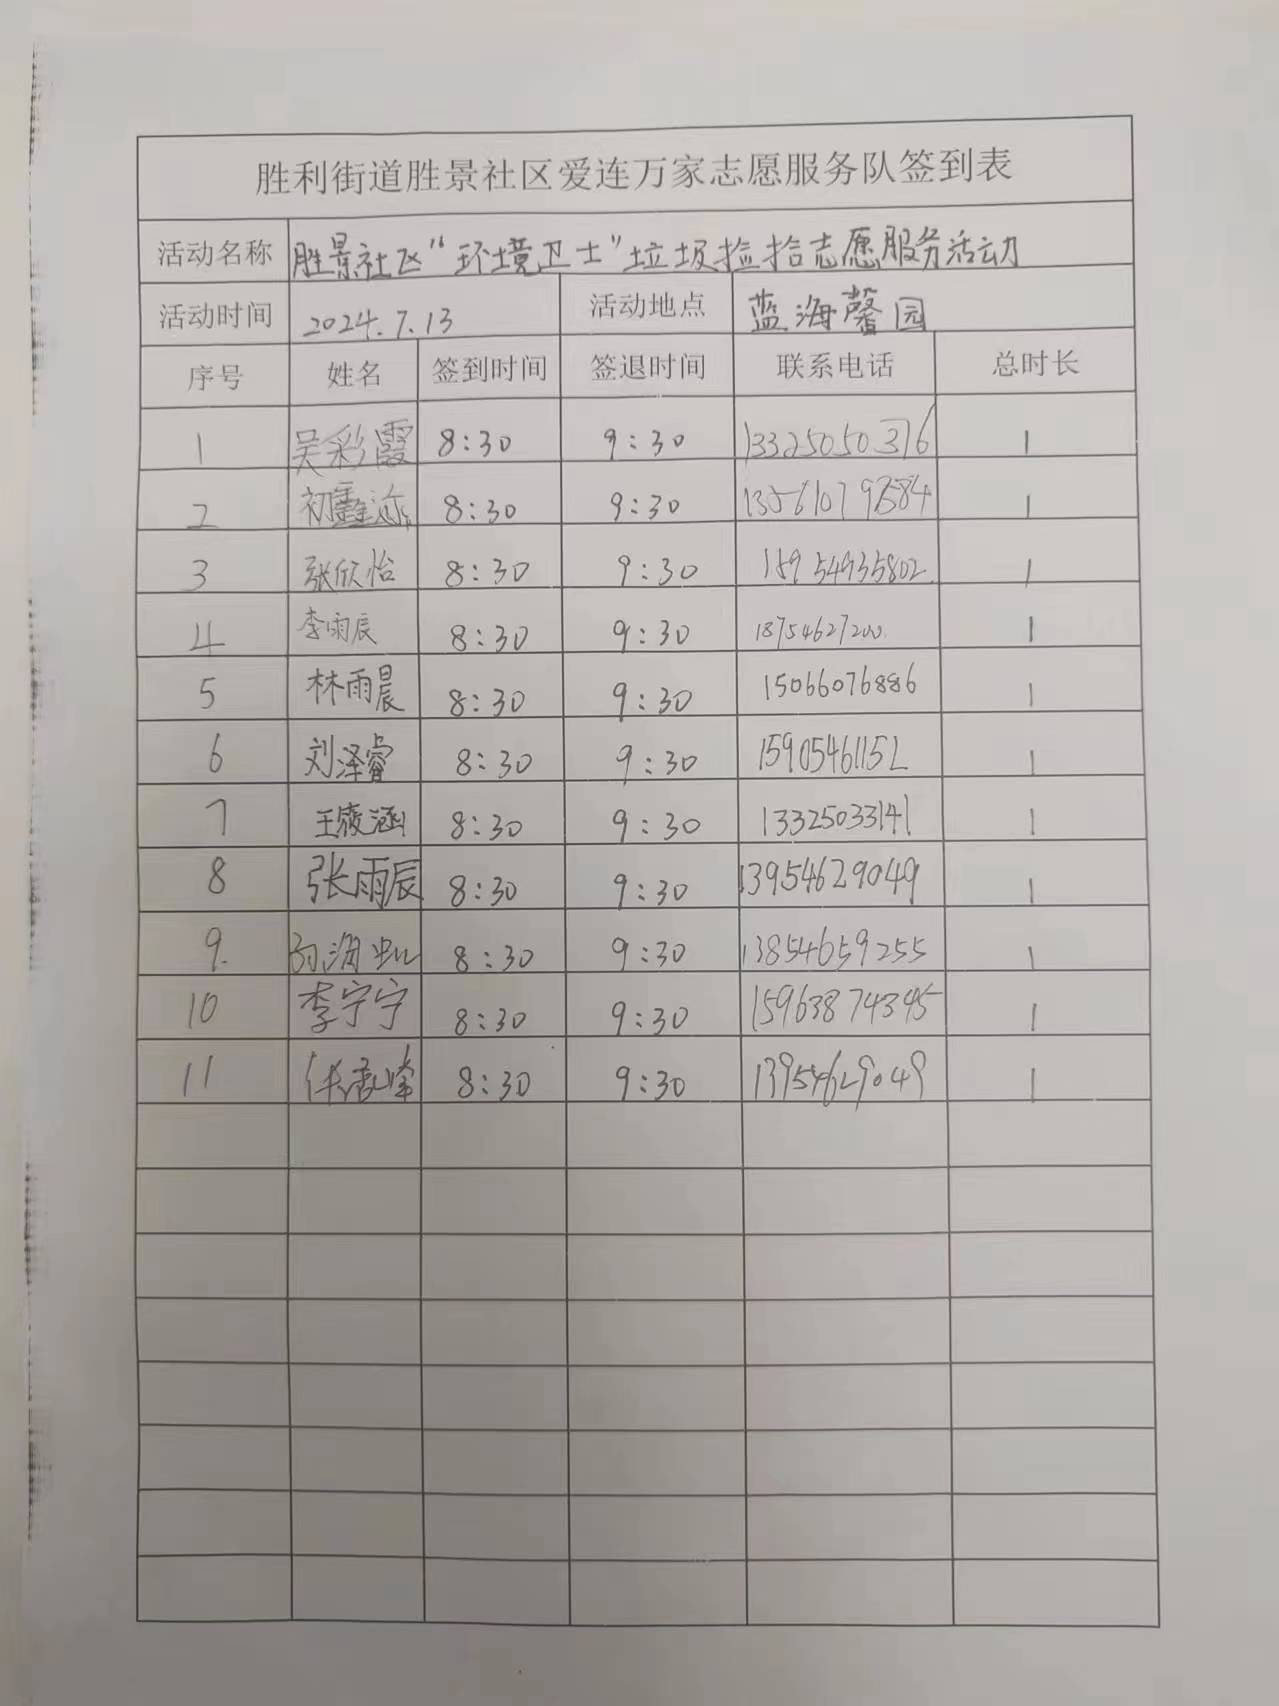 胜利街道胜景社区爱连万家志愿服务队签到表
活动名称 胜景社区“环境卫士”垃圾捡拾志愿服务活动
活动时间 2024.7.13 活动地点 蓝海馨园
序号 姓名 签到时间 签退时间 联系电话 总时长
1 吴彩霞 8:30 9:30 13325050376 1
2 8:30 9:30 1
3 张欣怡 8:30 9:30 15954935802 1
4 李雨辰 8:30 9:30 18754627200 1
5 林雨晨 8:30 9:30 15066076886 1
6 刘泽睿 8:30 9:30 15905461152 1
7 8:30 9:30 13325033141 1
8 张雨辰 8:30 9:30 13954629049 1
9. 8:30 9:30 13854659255 1
10 李宁宁 8:30 9:30 15963874345 1
11 8:30 9:30 13954629049 1